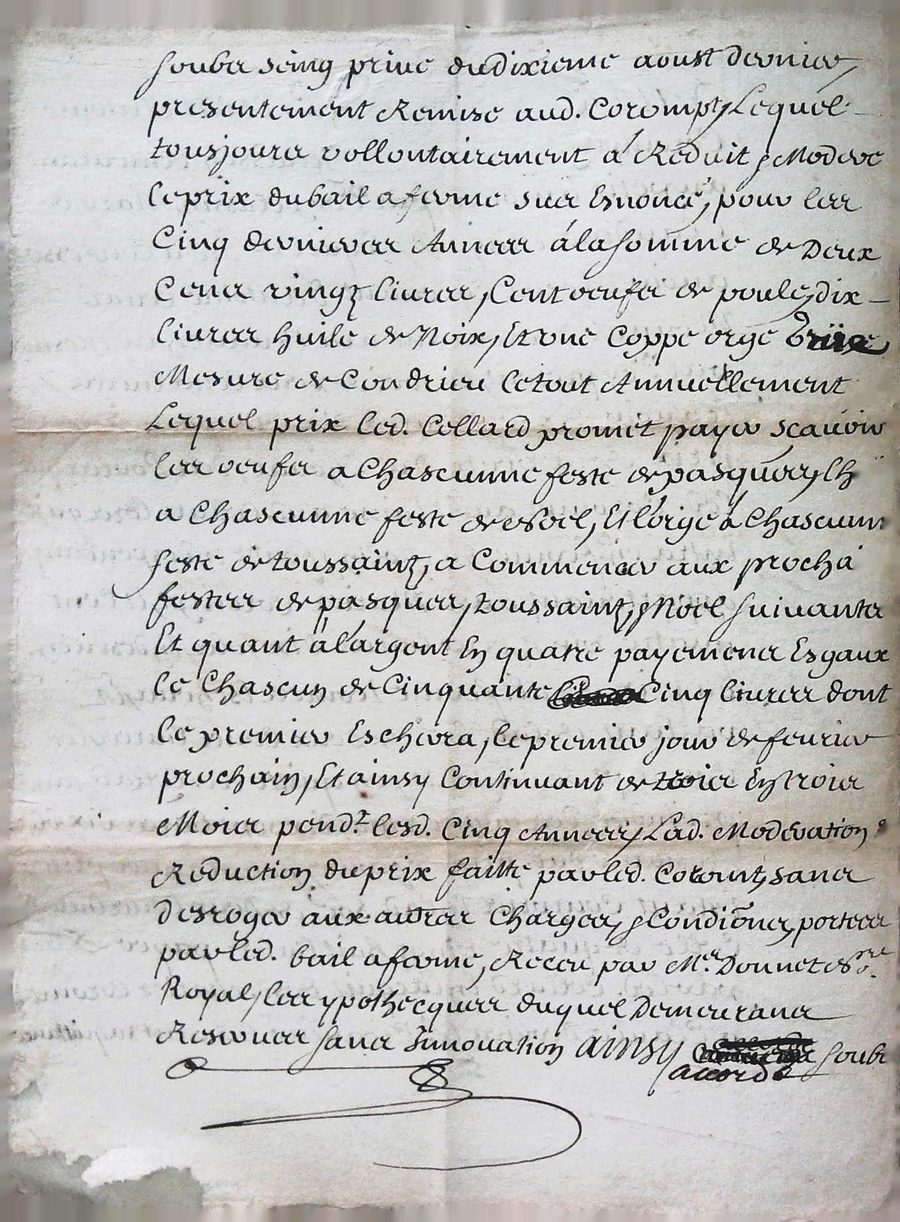 soubz seing privé du dixieme aoust dernier,
presentement Remise aud. Corompt, Lequel
tousjours vollontairement á Reduit & Modere
le prix du bail a ferme sus Enoncé, pour les
Cinq dernieres Années á la somme de Deux
Cens vingt livres, Cent oeufs de poule, dix
livres huile de Noix, Et une Coppe orge
Mesure de Condrieu le tout Annuellement
Lequel prix led. Cellard promet payer scavoir
les oeufs a Chascunne feste de pasques, lh
a Chascunne feste de Noel, Et lorge á Chascunn
feste de toussaint, a Commencer aux procha
festes de pasques, toussaint, & Noel suivantes
Et quant á largent En quatre payemens Esgaux
le Chascun de Cinquante Cinq livres dont
le premier Eschera, le premier jour de fevrier
prochain, Et ainsy Continuant de trois En trois
Mois pend.t lesd. Cinq Années, Lad. Moderation &
Reduction du prix faitte par led. Coromt, sans
desroger aux autres Charges, & Condiões, portees
par led. bail a ferme, Receu par M.e Donnet No.re
Royal, les ypothecques duquel Demeurans
Reservees sans Innovation ainsy soubz
accordé